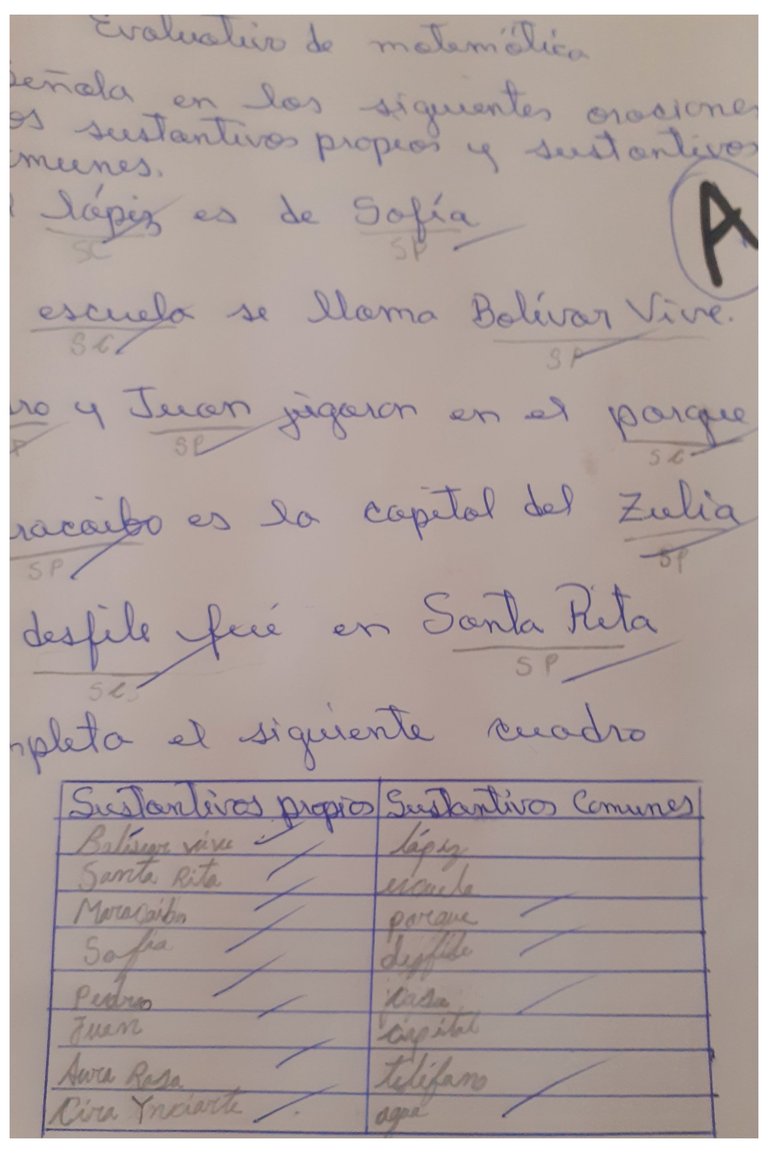 Evaluativo de matemática
eñala en las siguientes oraciones
os sustantivos propios y sustantivos
munes.
lápiz es de Sofía
SC SP
A
escuela se llama Bolívar Vive.
SC SP
ro y Juan jugaron en el parque
P SP SC
racaibo es la capital del Zulia
SP SP
desfile fué en Santa Rita
SC SP
mpleta el siguiente cuadro
Sustantivos propios Sustantivos Comunes
Bolívar vive lápiz
Santa Rita escuela
Maracaibo parque
Sofia desfile
Pedro casa
Juan capital
Aura Rosa teléfano
Cira Ynciarte agua